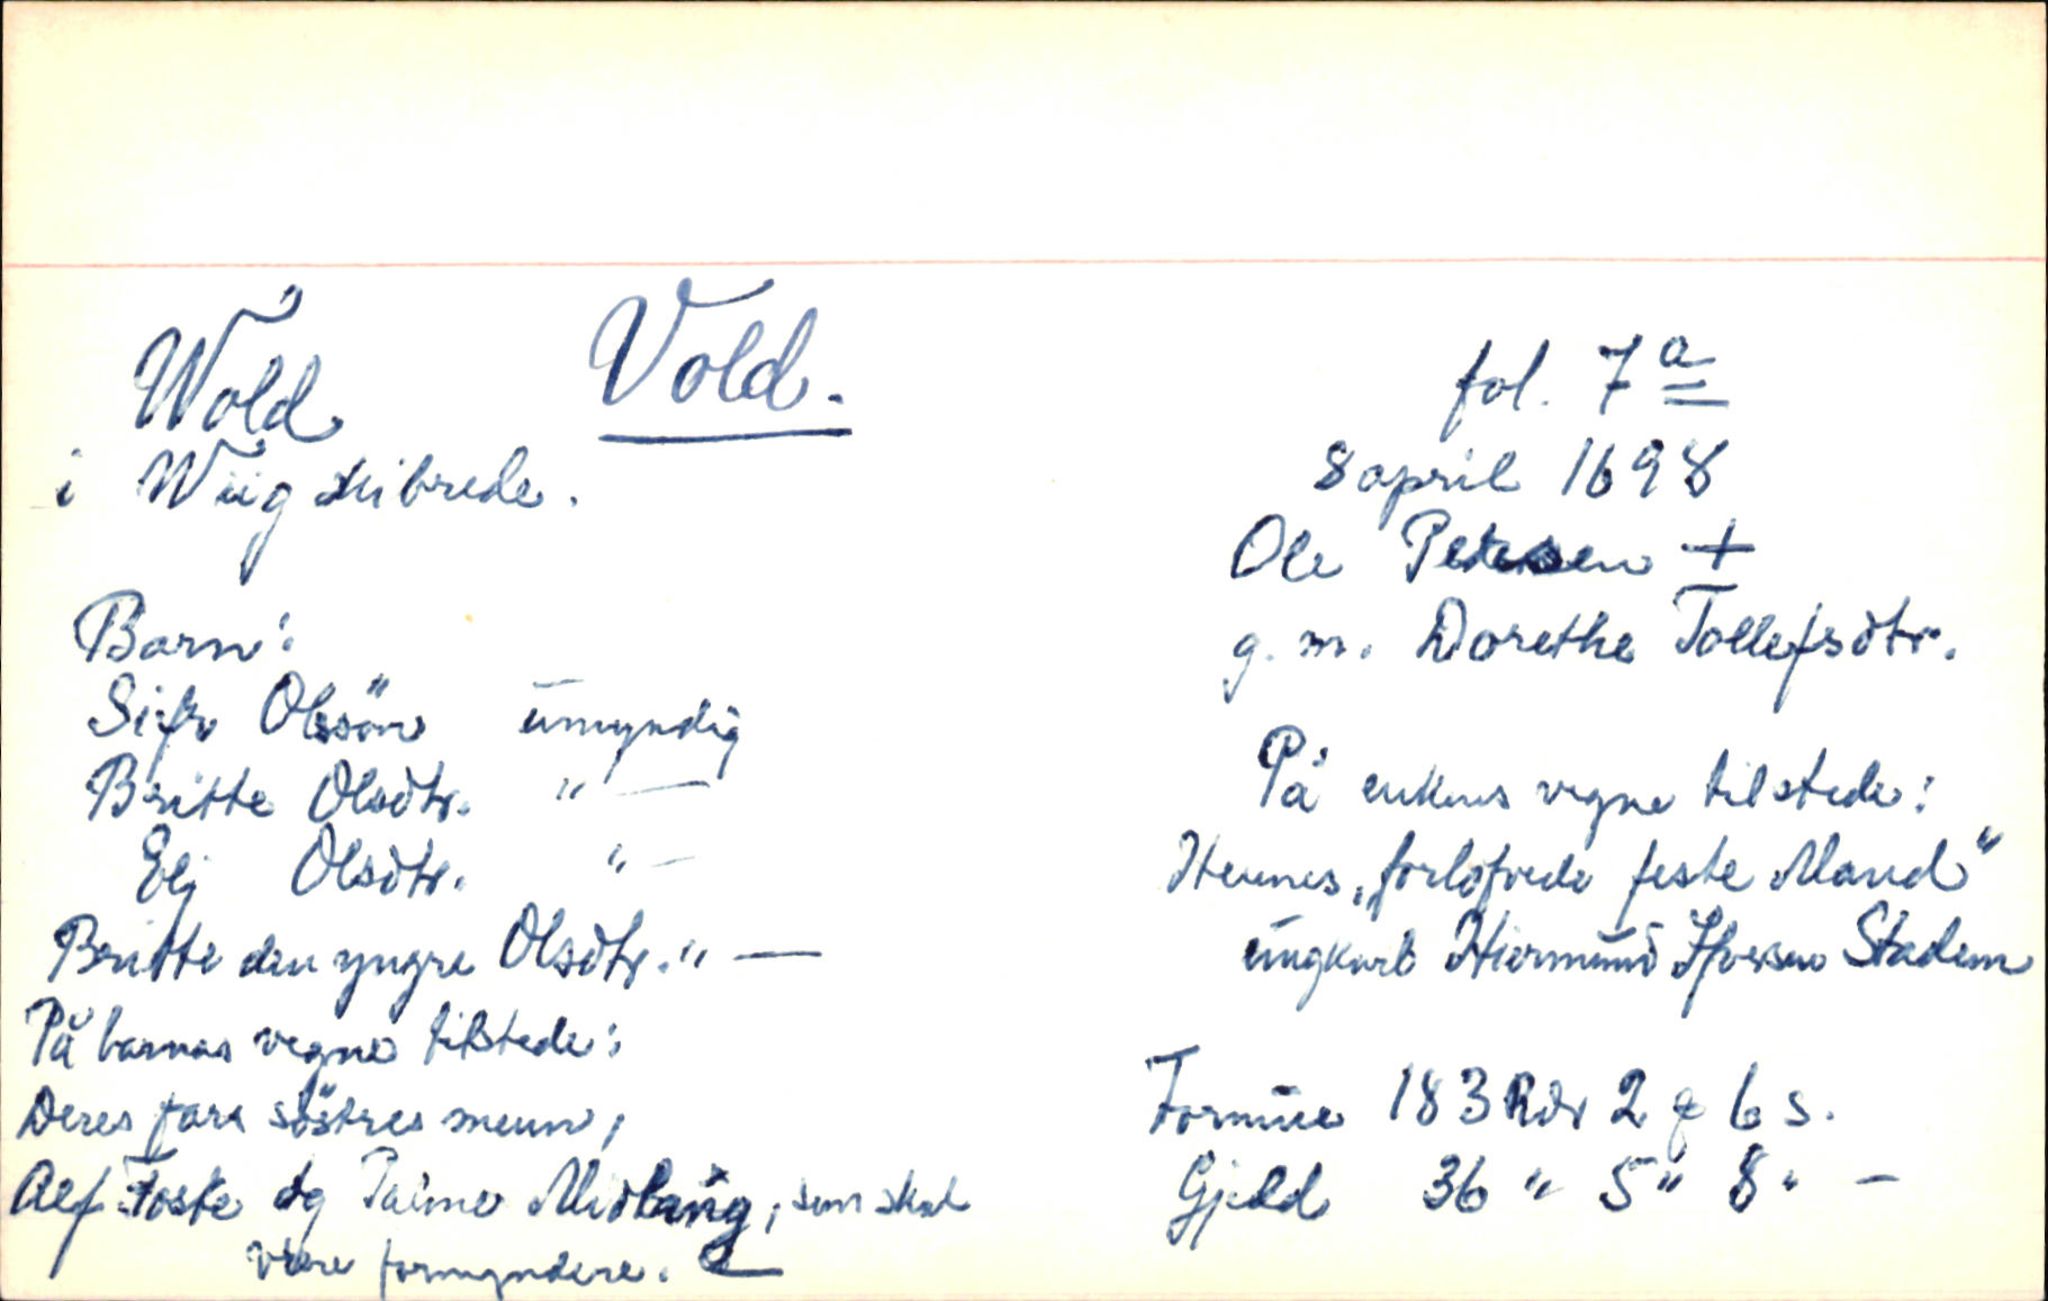 Wold
Vold.
i Wiig skibrede.
Barn:
Sifr Olssön umyndig
Britte Olsdtr. " —
Elj Olsdtr. " —
Britte den yngre Olsdtr. " —
På barnas vegne tilstede:
Deres fars söstres menn,
Alf Foske og Palme Midlaug, som skal
være formyndere.
fol. 7a
8 april 1698
Ole Petersen +
g. m. Dorethe Tollefsdtr.
På enkens vegne tilstede:
Hennes „forlofvede feste Mand"
ungkarl Hiermund Ifversen Stadem
Formue 183 Rdr 2 q 6 s.
Gjeld 36 " 5 " 8 " —